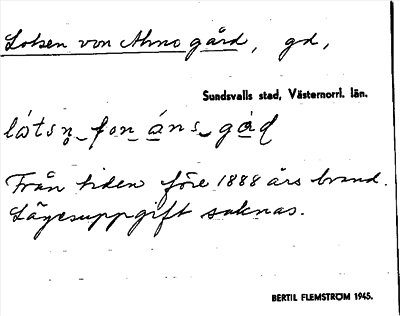 Lotsen von Ahns gård, gd,
Sundsvalls stad, Västernorrl. län.
låtsn fon áns gàḍ
Från tiden före 1888 års brand.
Lägesuppgift saknas.
BERTIL FLEMSTRÖM 1945.